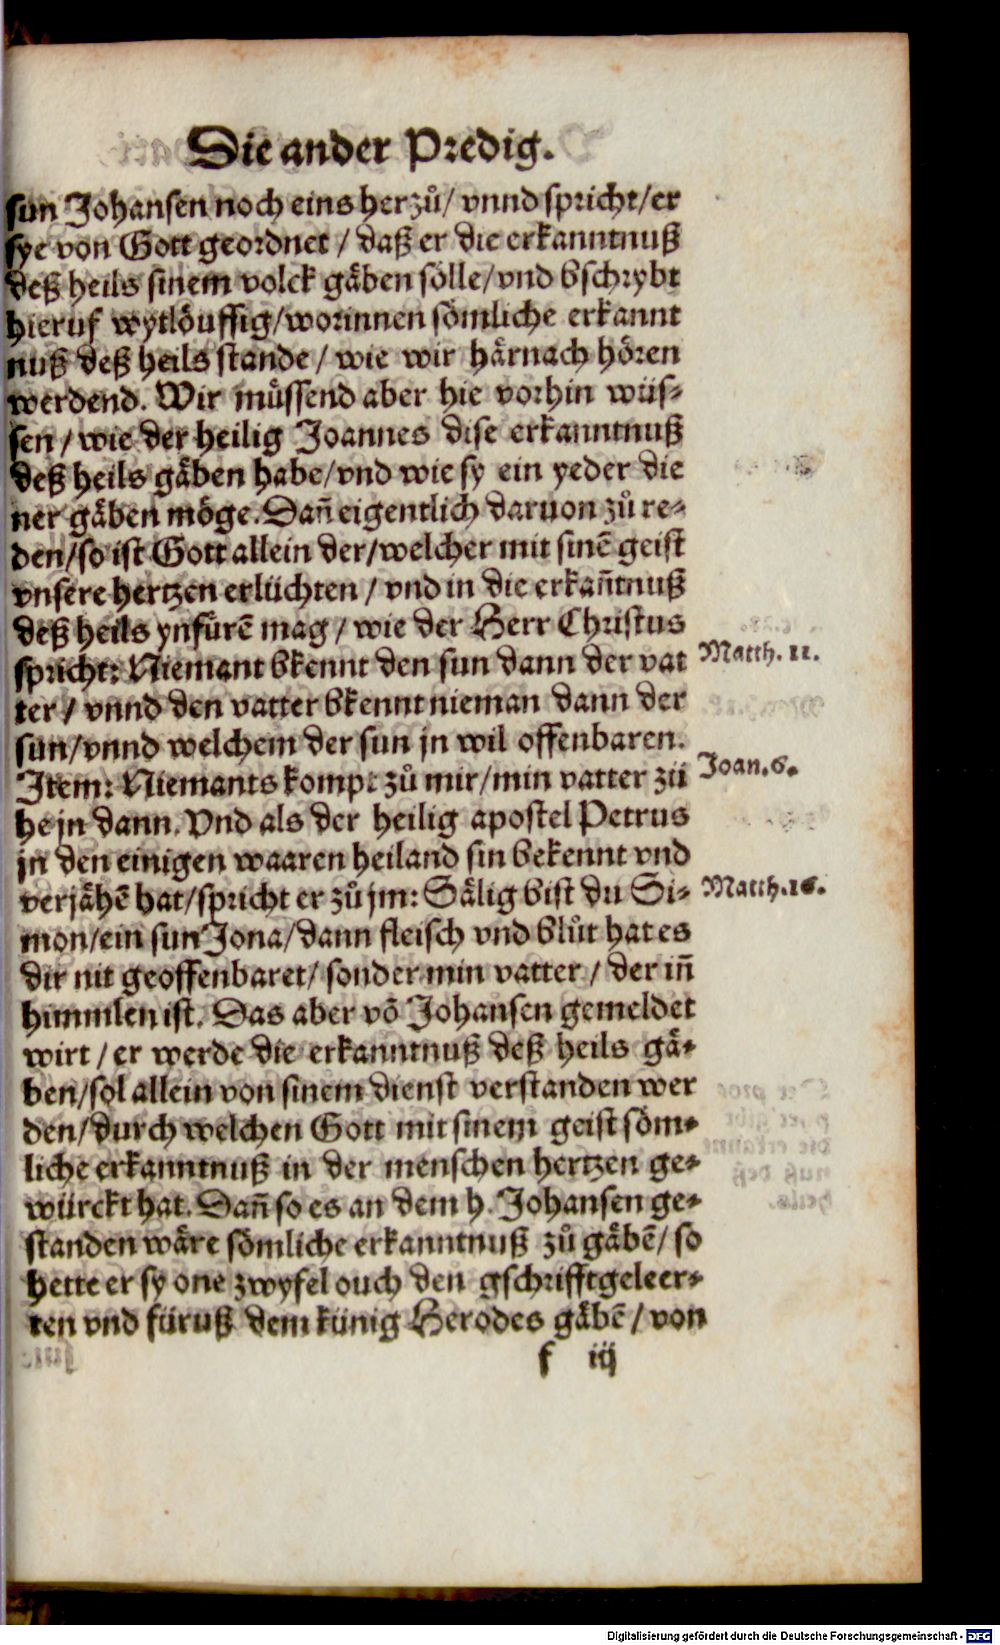 Die ander Predig.
sun Johansen noch eins herzů/ vnnd spricht/ er
sye von Gott geordnet / daß er die erkanntnuß
deß heils sinem volck gäben sölle/ vnd bschrybt
hieruf wytlöuffig/ worinnen sömliche erkannt
nuß deß heils stande / wie wir härnach hören
werdend. Wir müssend aber hie vorhin wüs⸗
sen / wie der heilig Joannes dise erkanntnuß
deß heils gäben habe/ vnd wie sy ein yeder die
ner gäben möge. Dañ eigentlich daruon zů re⸗
den/ so ist Gott allein der/ welcher mit sinē geist
vnsere hertzen erlüchten / vnd in die erkañtnuß
deß heils ynfürē mag / wie der Herr Christus
spricht: Niemant bkennt den sun dann der vat
ter / vnnd den vatter bkennt nieman dann der
sun/ vnnd welchem der sun jn wil offenbaren.
Item: Niemants kompt zů mir/ min vatter zü
he jn dann. Vnd als der heilig apostel Petrus
jn den einigen waaren heiland sin bekennt vnd
verjähē hat/ spricht er zů jm: Sälig bist du Si⸗
mon/ ein sun Jona/ dann fleisch vnd blůt hat es
dir nit geoffenbaret/ sonder min vatter / der iñ
himmlen ist. Das aber vō Johansen gemeldet
wirt / er werde die erkanntnuß deß heils gä⸗
ben/ sol allein von sinem dienst verstanden wer
den/ durch welchen Gott mit sinem geist söm⸗
liche erkanntnuß in der menschen hertzen ge⸗
würckt hat. Dañ so es an dem h. Johansen ge⸗
standen wäre sömliche erkanntnuß zů gäbē/ so
hette er sy one zwyfel ouch den gschrifftgeleer⸗
ten vnd füruß dem künig Herodes gäbē / von
f iij
Matth. 11.
Joan. 6.
Matth. 16.
Digitalisierung gefördert durch die Deutsche Forschungsgemeinschaft - DFG